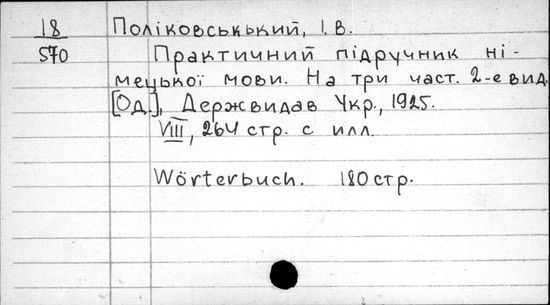 18 Поліковськький, І. В.
570 Практичний підручник ні-
мецької мови. На три част. 2-е вид.
[Од.], Держвидав Укр., 1925.
VIII, 264 стр. с илл.
Wörterbuch. 180 стр.